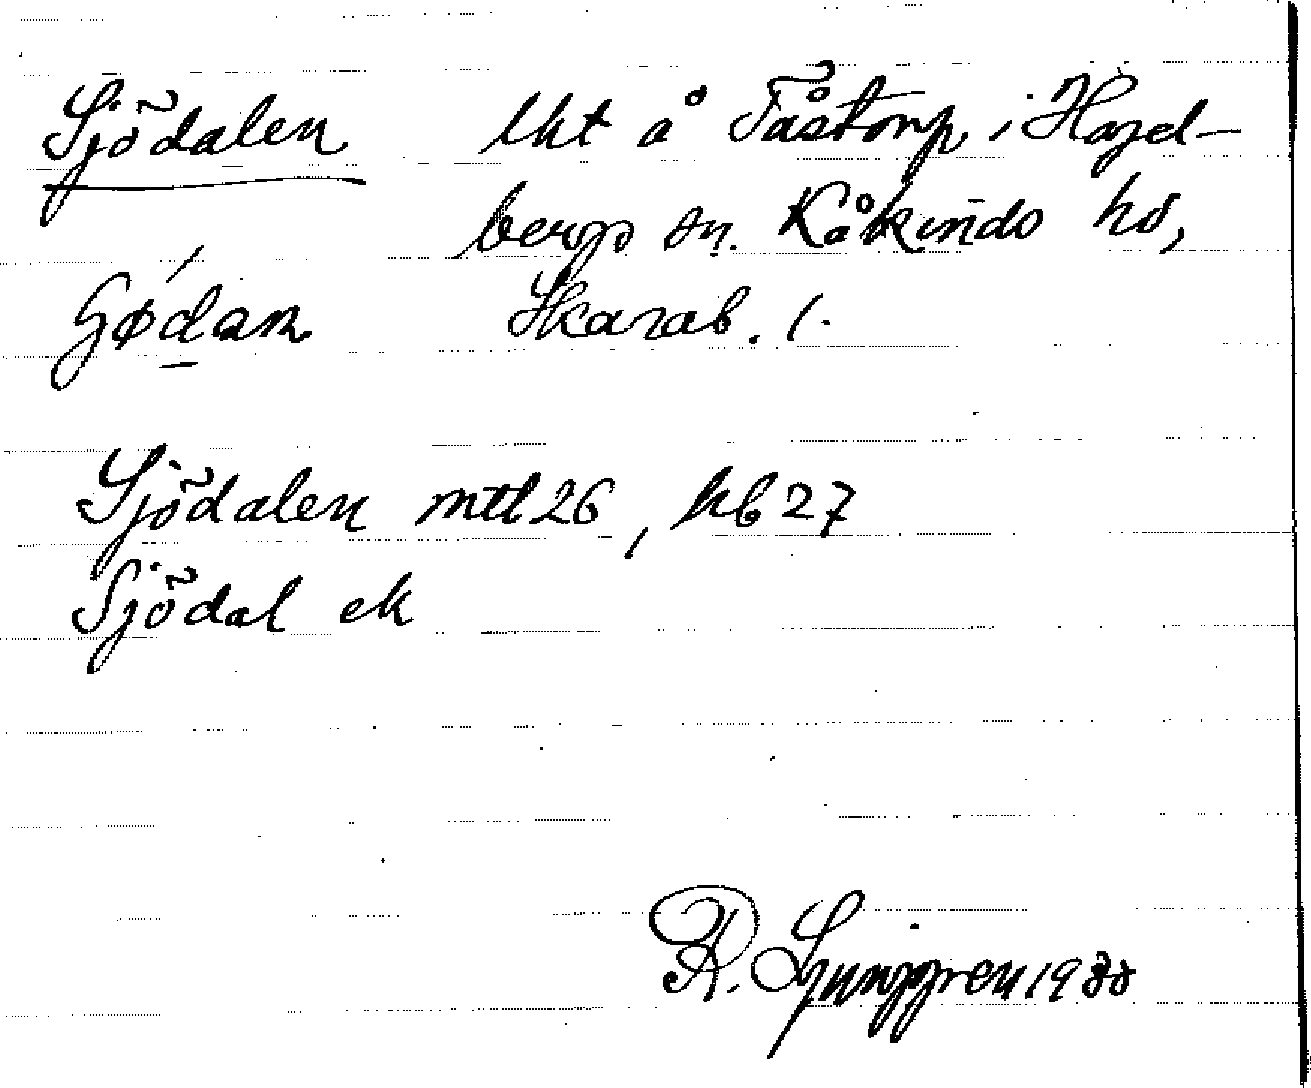 Sjödalen lht å Fåstorp, i Hagel-
bergs sn. Kåkinds hd,
Gødan Skarab. l.
Sjödalen mtl 26, hb 27
Sjödal ek
R. Ljunggren 1933